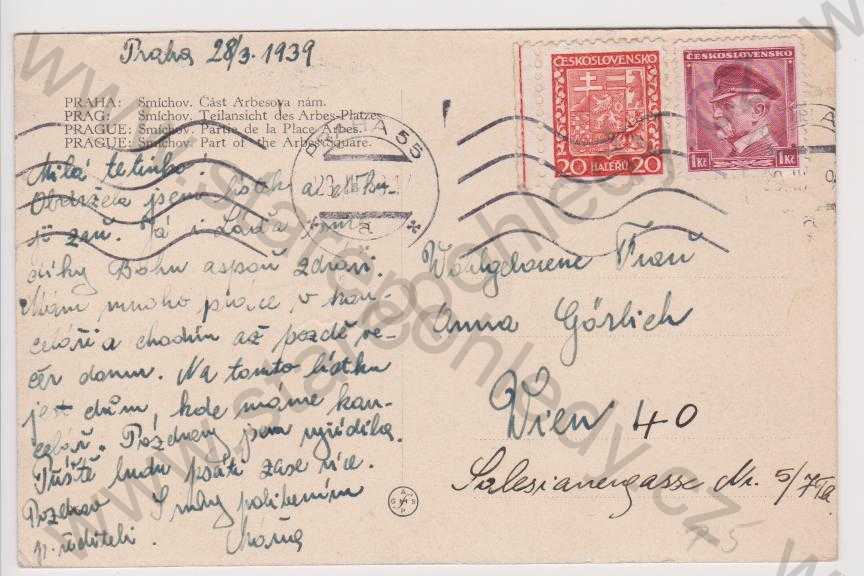 Praha 28/3. 1939
PRAHA: Smíchov. Část Arbesova nám.
PRAG: Smíchov. Teilansicht des Arbes-Platzes
PRAGUE: Smíchov. Partie de la Place Arbes.
PRAGUE: Smíchov. Part of the Arbes-Square.
ČESKOSLOVENSKO
20 HALÉŘŮ 20
ČESKOSLOVENSKO
1 Kč 1 Kč
PRAHA 55
Milá tetinko!
Obdržela jsem lístek a děku-
ji zaň. Já i Laďa jsme
díky Bohu aspoň zdraví.
Mám mnoho práce v kan-
celáři a chodím až pozdě ve-
čer domu. Na tomto lístku
jest dům, kde máme kan-
celář. Pozdravy jsem vyřídila.
Příště budu psáti zase více.
Pozdrav
rúditeli.
Wohlgeborene Frau
Anna Görlich
Wien 40
Salesianergasse Nr. 5/7
www.starepohledy.cz